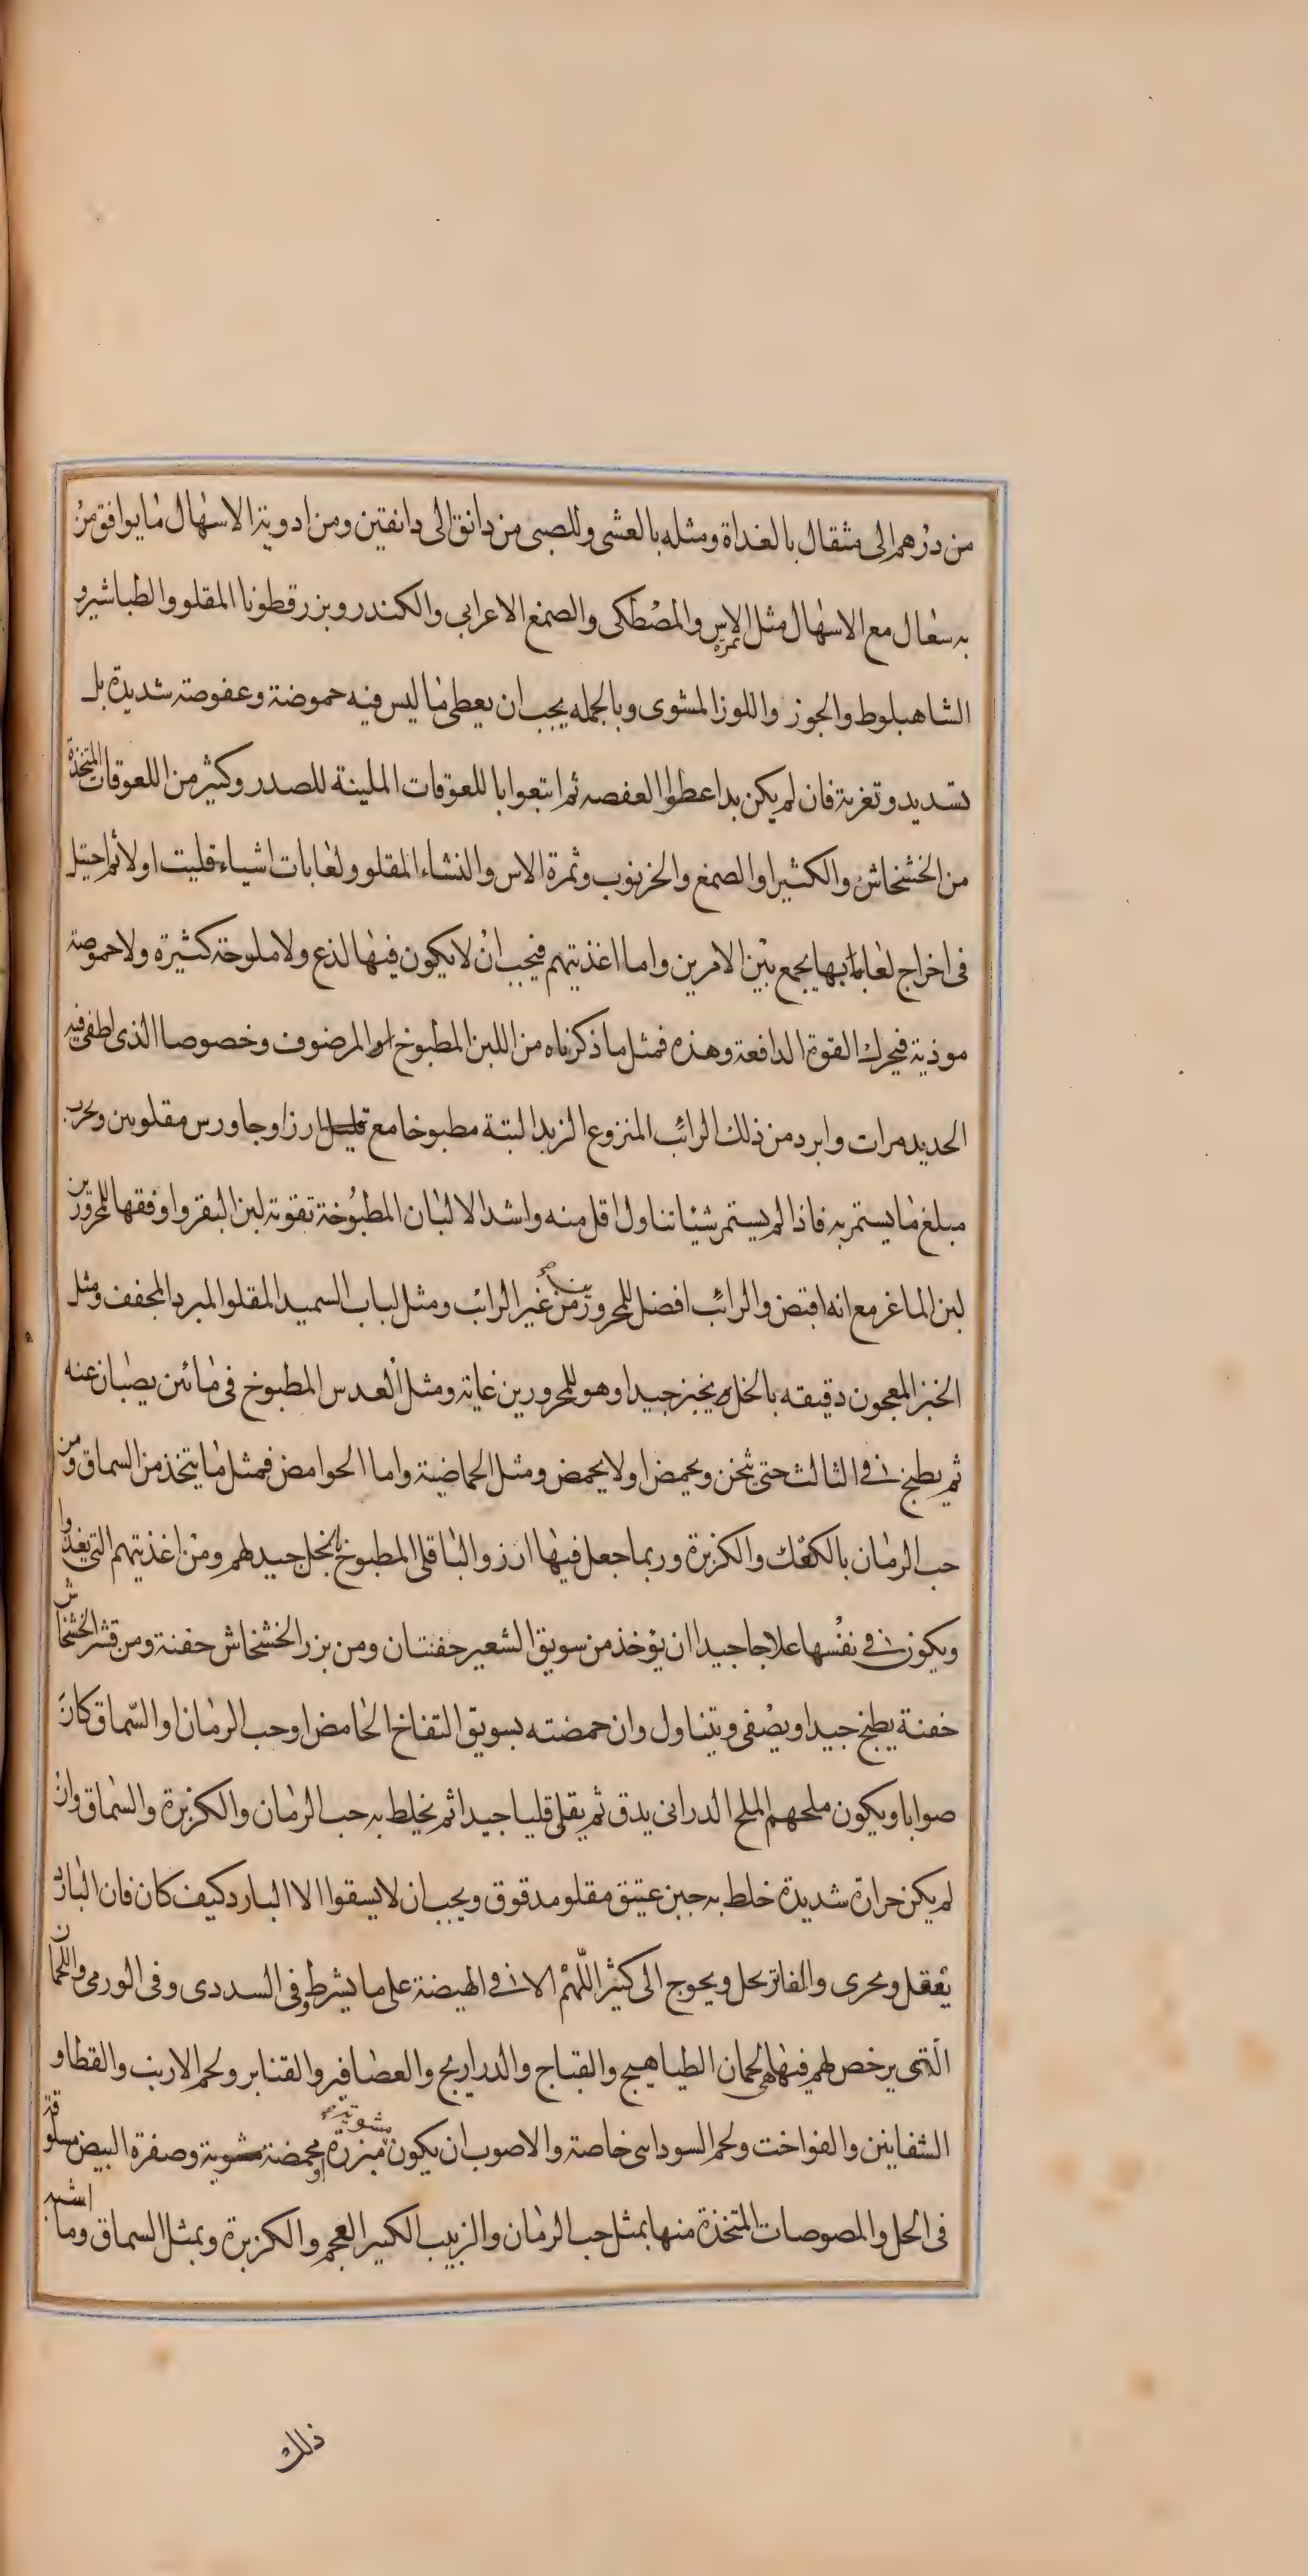 من درهم الى مثقال بالغداة ومثله بالعشى وللصبى من دانق الى دانقين ومن ادوية الاسهال ما يوافق من
به سعال مع الاسهال مثل ثمرة الاس والمصطكى والصمغ الاعرابى والكندر وبزر قطونا المقلو والطباشير و
الشاهبلوط والجوز واللوز المشوى وبالجمله يجب ان يعطى ما ليس فيه حموضة وعفوصة شديدة بل
تسديد وتغرية فان لم يكن بد اعطوا العفصه ثم اتبعوا باللعوقات الملينة للصدر وكثير من اللعوقات المتخذة
من الخشخاش والكثيرا والصمغ والخرنوب وثمرة الاس والنشاء المقلو ولعابات اشياء قليت اولا ثم احتيل
فى اخراج لعاباتها يجمع بين الامرين واما اغذيتهم فيجب ان لا يكون فيها لذع ولا ملوحة كثيرة ولا حموضة
موذية فيحرك القوة الدافعة وهذه فمثل ما ذكرناه من اللبن المطبوخ او المرضوف وخصوصا الذى اطفى فيه
الحديد مرات وابرد من ذلك الرائب المنزوع الزبد البتة مطبوخا مع قليل ارز او جاورس مقلوين ويجرب
مبلغ ما يستمر به فاذا لم يستمر شيئا تناول اقل منه واشد الالبان المطبوخة تقوية لبن البقر واوفقها للمحرورين
لبن الماعز مع انه اقبض والرائب افضل للمحرورين من غير الرائب ومثل لباب السميد المقلو المبرد المجفف ومثل
الخبز المعجون دقيقه بالخل يخبز جيدا وهو للمحرورين غاية ومثل العدس المطبوخ فى مائين يصبان عنه
ثم يطبخ فى الثالث حتى يثخن ويحمض او لا يحمض ومثل الحماضية واما الحوامض فمثل ما يتخذ من السماق ومن
حب الرمان بالكعك والكزبرة وربما جعل فيها ارز والباقلى المطبوخ بالخل جيد لهم ومن اغذيتهم التى يغذوا
ويكون فى نفسها علاجا جيدا ان يؤخذ من سويق الشعير حفنتان ومن بزر الخشخاش حفنة ومن قشر الخشخاش
حفنة يطبخ جيدا ويصفى ويتناول وان حمضته بسويق التفاح الحامض او حب الرمان او السماق كان
صوابا ويكون ملحهم الملح الدرانى يدق ثم يقلى قليا جيدا ثم يخلط به حب الرمان والكزبرة والسماق وان
لم يكن حرارة شديدة خلط به جبن عتيق مقلو مدقوق ويجب ان لا يسقوا الا البارد كيف كان فان البارد
يعقل ويجرى والفاتر يحل ويحوج الى كثير اللهم الا فى الهيضة على ما يشرط وفى السددى وفى الورمى واللحمان
التى يرخص لهم فيها هى لحمان الطياهيج والقباج والدراريج والعصافير والقنابر ولحم الارنب والقطا و
الشفانين والفواخت ولحم السوداسى خاصة والاصوب ان يكون مشوية مبزرة او محمضة مشوية وصفرة البيض مسلوقة
فى الخل والمصوصات المتخذة منها بمثل حب الرمان والزبيب الكبير العجم والكزبرة وبمثل السماق وما اشبه
ذلك